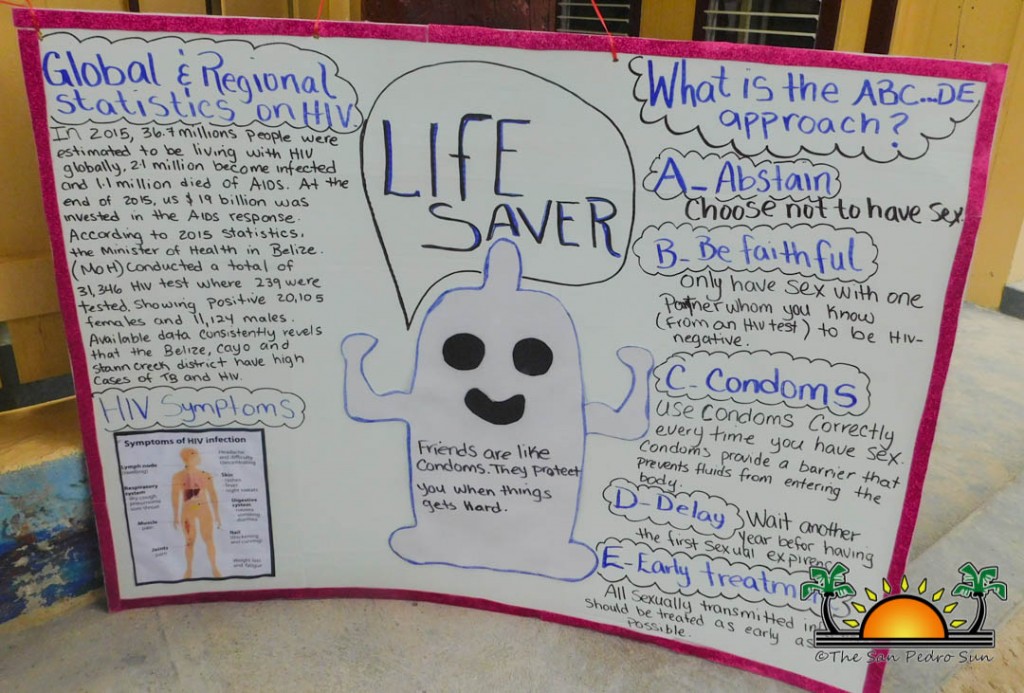 Global & Regional
statistics on HIV
In 2015, 36.7 millions people were
estimated to be living with HIV
globally, 2.1 million become infected
and 1.1 million died of AIDS. At the
end of 2015, us $ 19 billion was
invested in the AIDS response.
According to 2015 statistics,
the Minister of Health in Belize.
(MoH) Conducted a total of
31,346 HIV test where 239 were
tested. Showing positive 20,105
females and 11,124 males.
Available data consistently revels
that the Belize, Cayo and
Stann Creek district have high
cases of TB and HIV.
HIV Symptoms
Symptoms of HIV infection
Lymph node
Respiratory
system
Muscle
pain
Joints
pain
Headache
and difficulty
concentrating
Skin
Digestive
system
Weight loss
and fatigue
LIFE
SAVER
Friends are like
Condoms. They protect
you when things
gets Hard.
What is the ABC...DE
approach?
A- Abstain
Choose not to have sex.
B- Be faithful
only have sex with one
Partner whom you know
(from an HIV test) to be HIV-
negative.
C- Condoms
Use Condoms Correctly
every time you have sex.
Condoms provide a barrier that
prevents fluids from entering the
body.
D- Delay Wait another
year befor having
the first sexual expiren
E- Early treatm
All sexually transmitted in
should be treated as early as
Possible.
©The San Pedro Sun